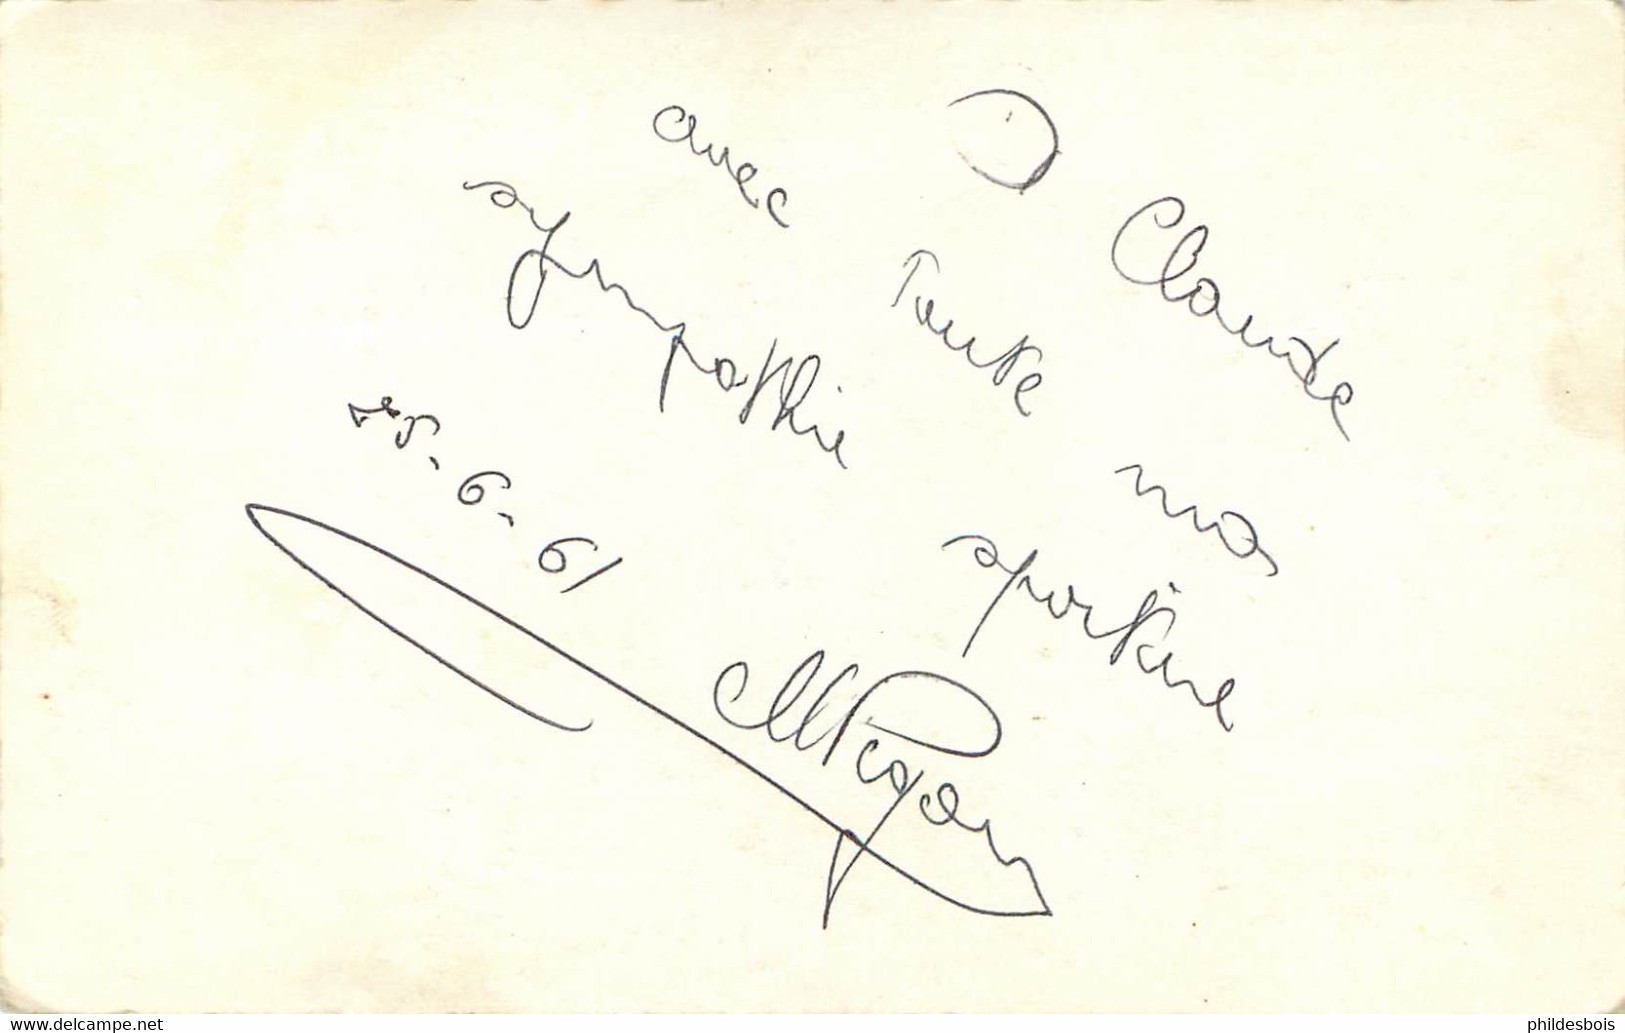 à Claude
avec toute ma
sympathie sportive
25-6-61
M Pigeon
www.delcampe.net
phildesbois